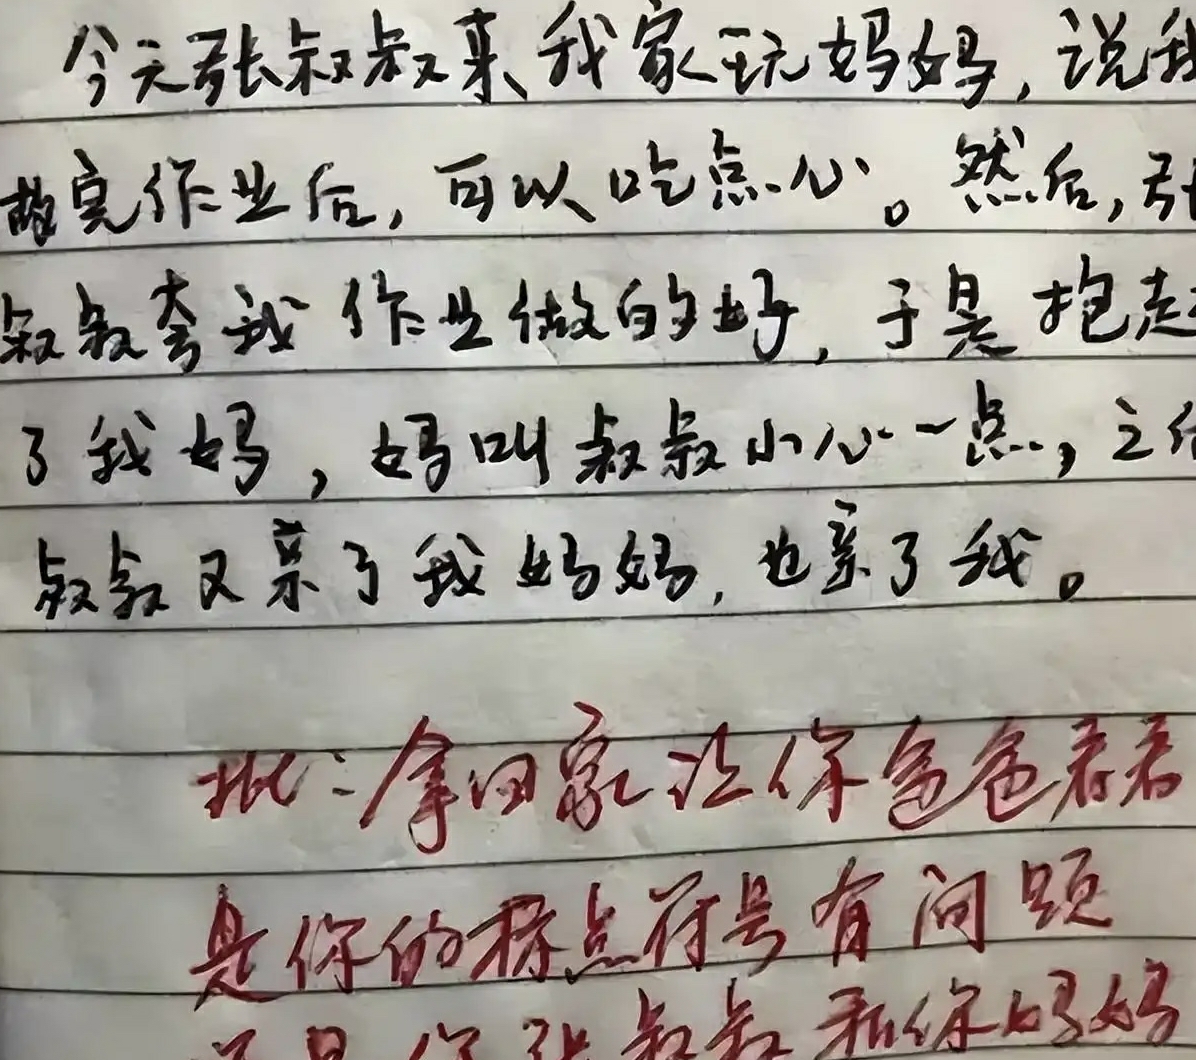 今天张叔叔来我家玩妈妈,说我
做完作业后,可以吃点心。然后,张
叔叔夸我作业做的好,于是抱起
了我妈,妈叫叔叔小心一点,之后
叔叔又亲了我妈妈,也亲了我。
批:拿回家让你爸爸看看
是你的标点符号有问题
还是你张叔叔和你妈妈